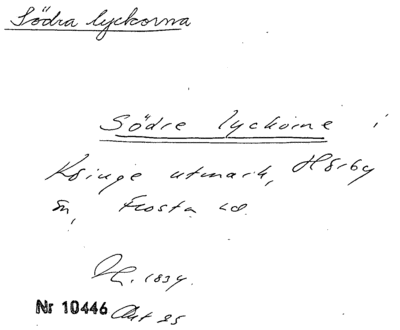 Södra lyckorna
Södre lyckorne i
Kringe utmark, Hörby
sn, Frosta hd.
1834.
Nr 10446 Akt 25